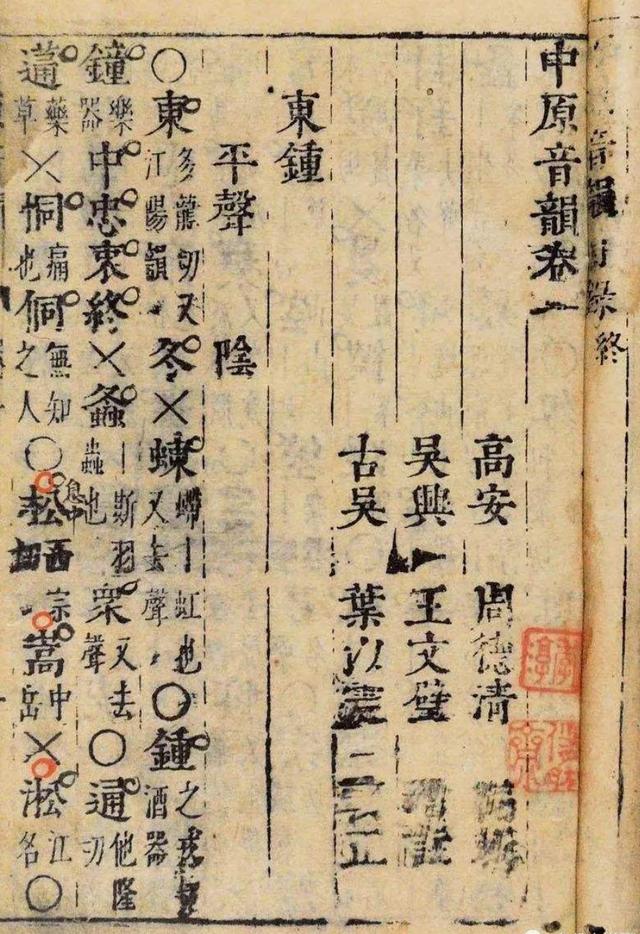 中原音韻卷一
高安 周德清
吳興 王文璧
古吳 葉以震
東鍾
平聲 陰
○東多龍切又江陽韻冬×蝀螮丨虹也又去聲○鍾酒器
鐘樂器中忠衷終×螽丨斯羽蟲也衆又去聲○通他隆切
蓪藥草×恫痛也侗無知之人○松息中切嵩中岳×淞江名○